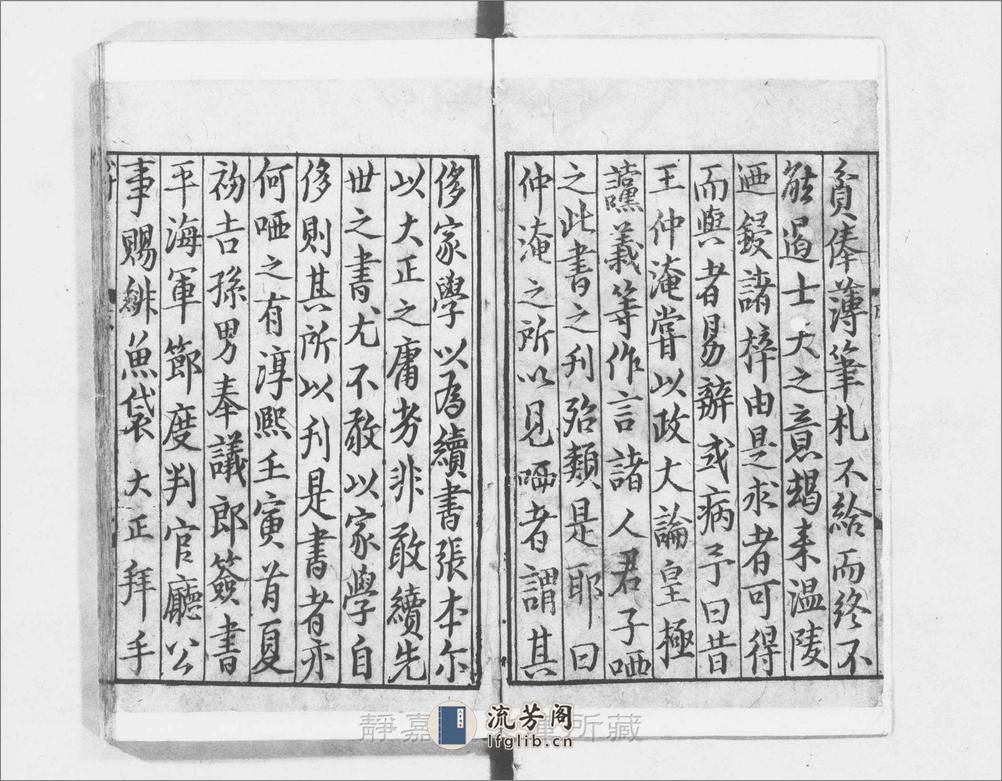 貧俸薄筆札不給而終不
能遏士大之意朅来温陵
廼鋟諸梓由是求者可得
而與者易辭或病予曰昔
王仲淹甞以政大論皇極
讜義等作言諸人君子哂
之此書之刋殆類是耶曰
仲淹之所以見哂者謂其
侈家學以為續書張本尔
以大正之庸劣非敢續先
世之書尤不敢以家學自
侈則其所以刋是書者亦
何哂之有淳熈壬寅首夏
初吉孫男奉議郎簽書
平海軍節度判官廳公
事賜緋魚袋 大正拜手
靜嘉 所藏
流芳阁
lfglib.cn